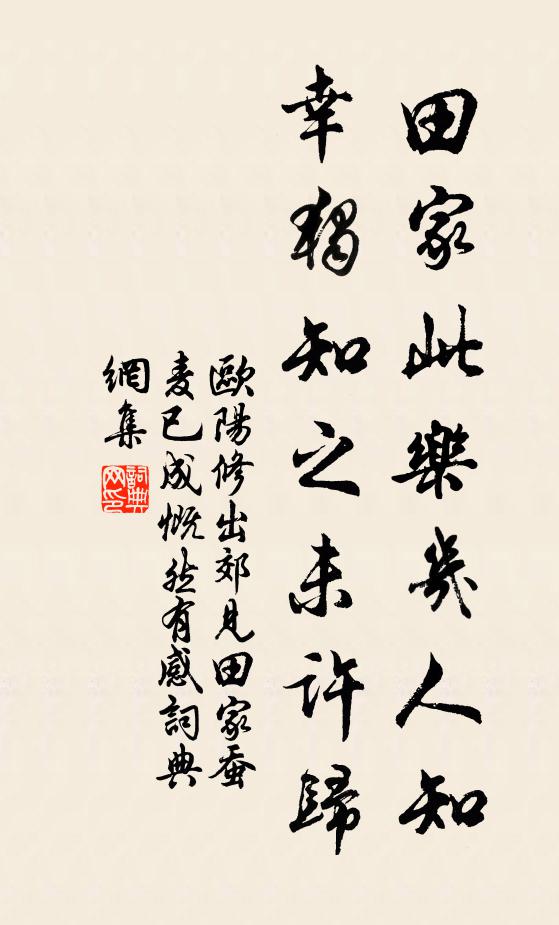 田家此樂幾人知
幸獨知之未許歸
歐陽修出郊見田家蚕
麦已成慨然有感詞典
網集
詞典
网印